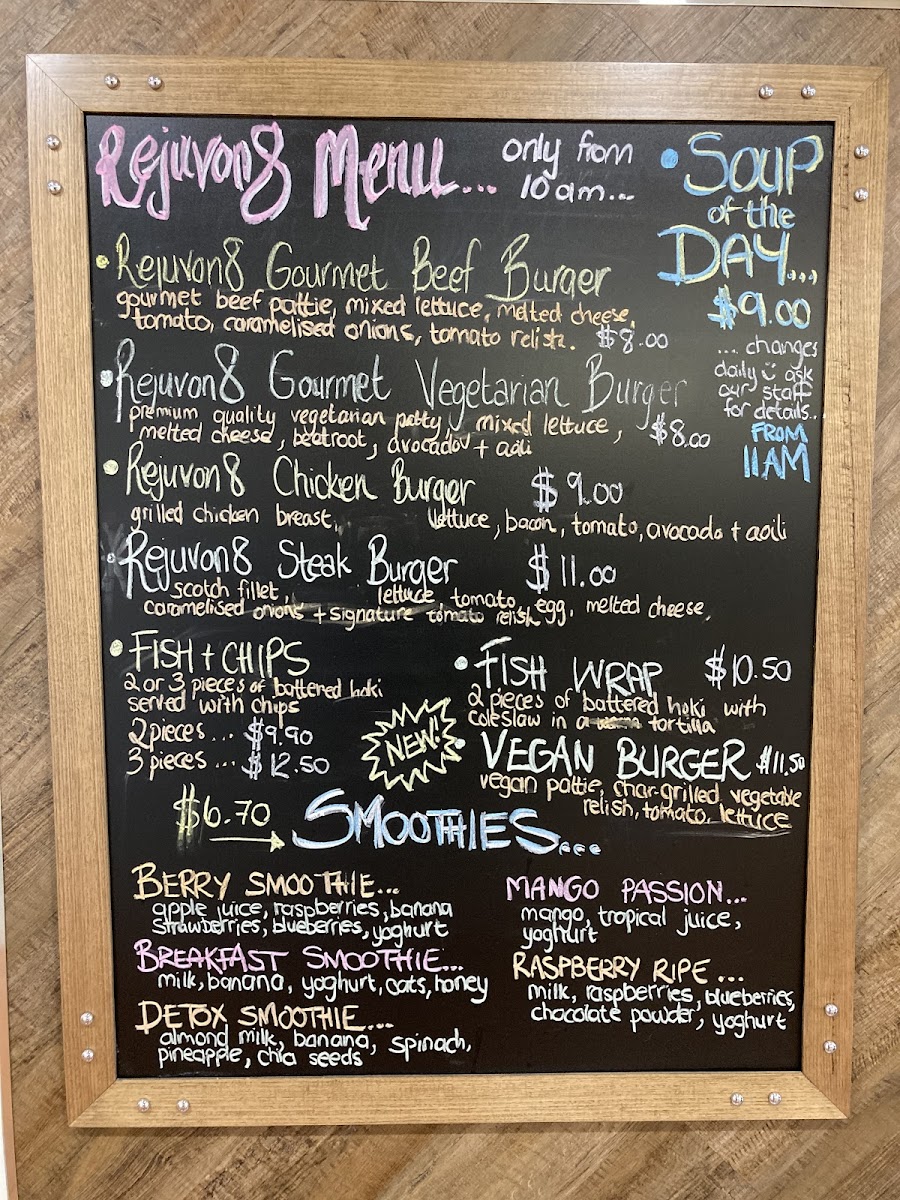 Rejuvon8 Menu...
only from
10am...
Rejuvon8 Gourmet Beef Burger
gourmet beef pattie, mixed lettuce, melted cheese,
tomato, caramelised onions, tomato relish. $8.00
Rejuvon8 Gourmet Vegetarian Burger
premium quality vegetarian patty, mixed lettuce, $8.00
melted cheese, beatroot, avocadov + aoili
Rejuvon8 Chicken Burger $9.00
grilled chicken breast, lettuce, bacon, tomato, avocado + aoili
Rejuvon8 Steak Burger $11.00
scotch fillet, lettuce tomato, egg, melted cheese,
caramelised onions + signature tomato relish
SOUP
of the
DAY...
$9.00
... changes
daily ask
our staff
for details..
FROM
11AM
FISH + CHIPS
2 or 3 pieces of battered hoki
served with chips
2 pieces... $9.90
3 pieces ... $12.50
NEW!
FISH WRAP $10.50
2 pieces of battered hoki with
coleslaw in a tortilla
VEGAN BURGER $11.50
vegan pattie, char-grilled vegetable
relish, tomato, lettuce
$6.70 SMOOTHIES...
BERRY SMOOTHIE...
apple juice, raspberries, banana
strawberries, blueberries, yoghurt
BREAKFAST SMOOTHIE...
milk, banana, yoghurt, oats, honey
DETOX SMOOTHIE...
almond milk, banana, spinach,
pineapple, chia seeds
MANGO PASSION...
mango, tropical juice,
yoghurt
RASPBERRY RIPE...
milk, raspberries, blueberries,
chocolate powder, yoghurt